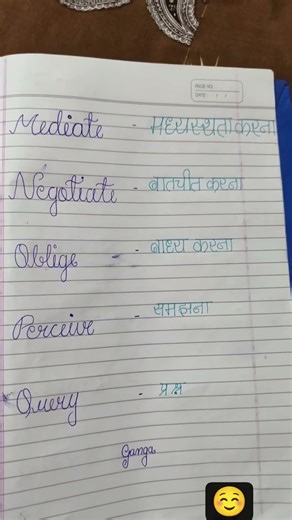 PAGE NO.
DATE: / /
Mediate - मध्यस्थता करना
Négotiate - बातचीत करना
Oblige - बाध्य करना
Perceive - समझना
Query - प्रश्न
Ganga